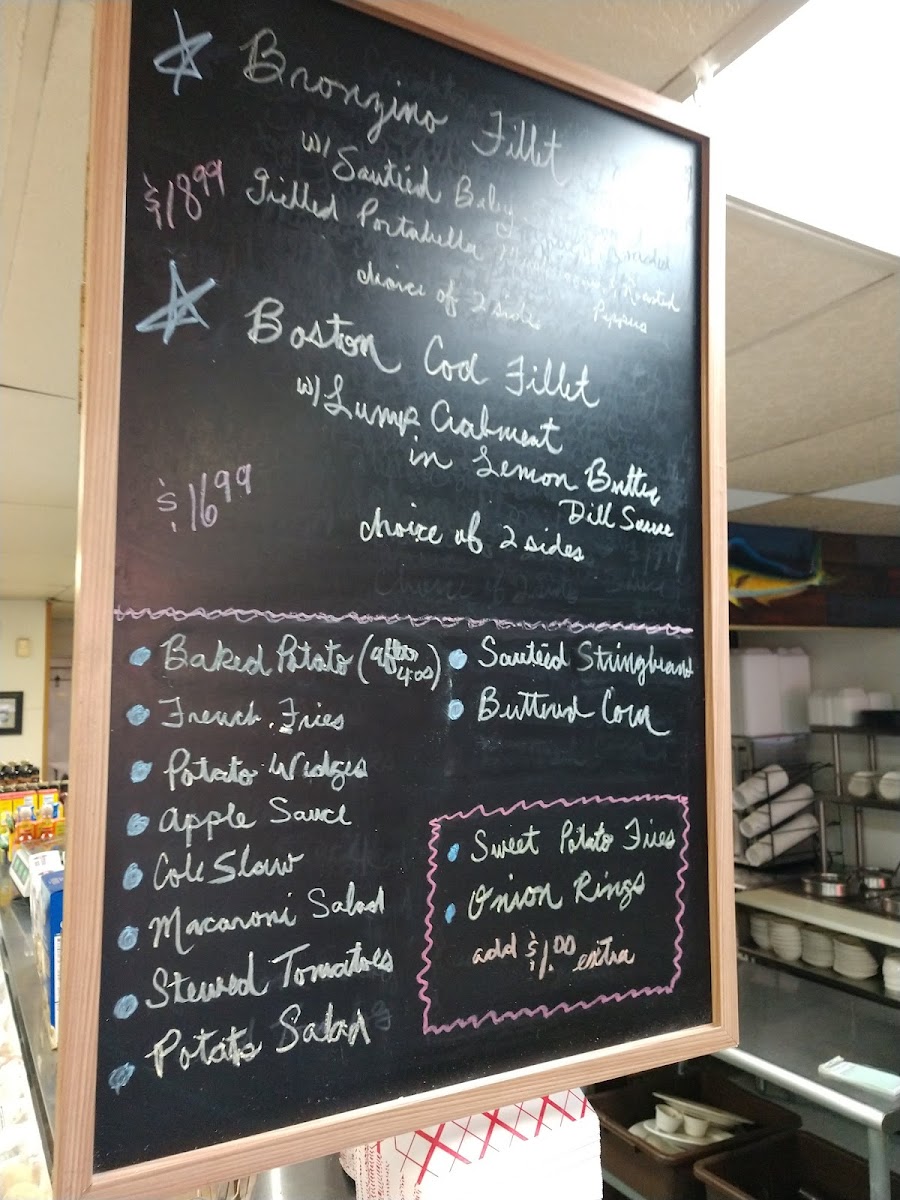 Bronzino Fillet
w/ Sautéed Baby
$18.99
Grilled Portabella Mushrooms & Roasted
Peppers
choice of 2 sides
Boston Cod Fillet
w/ Lump Crabmeat
in Lemon Butter
Dill Sauce
$16.99
choice of 2 sides
Baked Potato (after 4:00)
French Fries
Potato Wedges
Apple Sauce
Cole Slaw
Macaroni Salad
Stewed Tomatoes
Potato Salad
Sautéed Stringbeans
Buttered Corn
Sweet Potato Fries
Onion Rings
add $1.00 extra